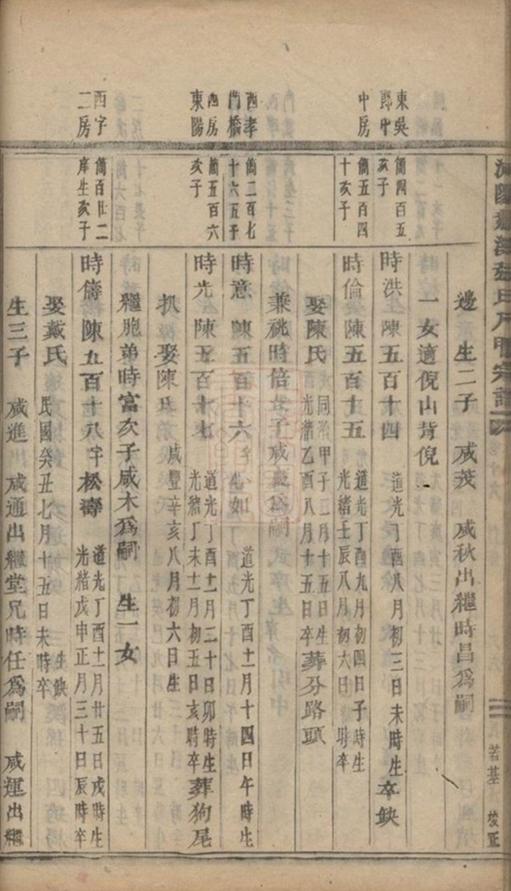 邊　生二子　咸茂　咸秋出繼時昌爲嗣
一女適倪山背倪
東吳郎中
簡四百五亥子
時洪 陳五百十四 道光丁酉八月初三日未時生 卒缺
中房
簡五百四十亥子
時倫 陳五百十五 道光丁酉九月初四日子時生 光緒壬辰八月初六日 時卒
娶陳氏 同治甲子三月十五日 生 光緒乙酉八月十五日 卒 葬分路頭
兼祧時倍 子咸 爲嗣
西孝門橋
簡二百七十六五子
時意 陳五百十六 字生如 道光丁酉十一月十四日午時生
西房東陽
簡五百六亥子
時光 陳五百十七 道光丁酉十一月三十日卯時生 光緒丁未十一月初五日亥時卒 葬狗尾
扒 娶陳氏 咸豐辛亥八月初六日生
繼胞弟時富次子咸木爲嗣　生一女
西字二房
簡百廿二庠生亥子
時儔 陳五百十八 字松壽 道光丁酉十二月廿五日戌時生 光緒戊申正月三十日辰時卒
娶戴氏 生缺 民國癸丑七月十五日未時卒
生三子　咸進　咸通出繼堂兄時任爲嗣　咸運出繼
若基 校正